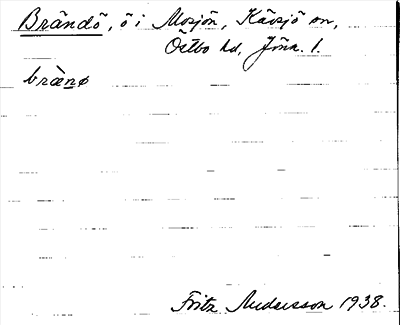 Brändö, ö i Mosjön, Kävsjö sn,
Östbo hd, Jönk. l.
brànø
Fritz Andersson 1938.